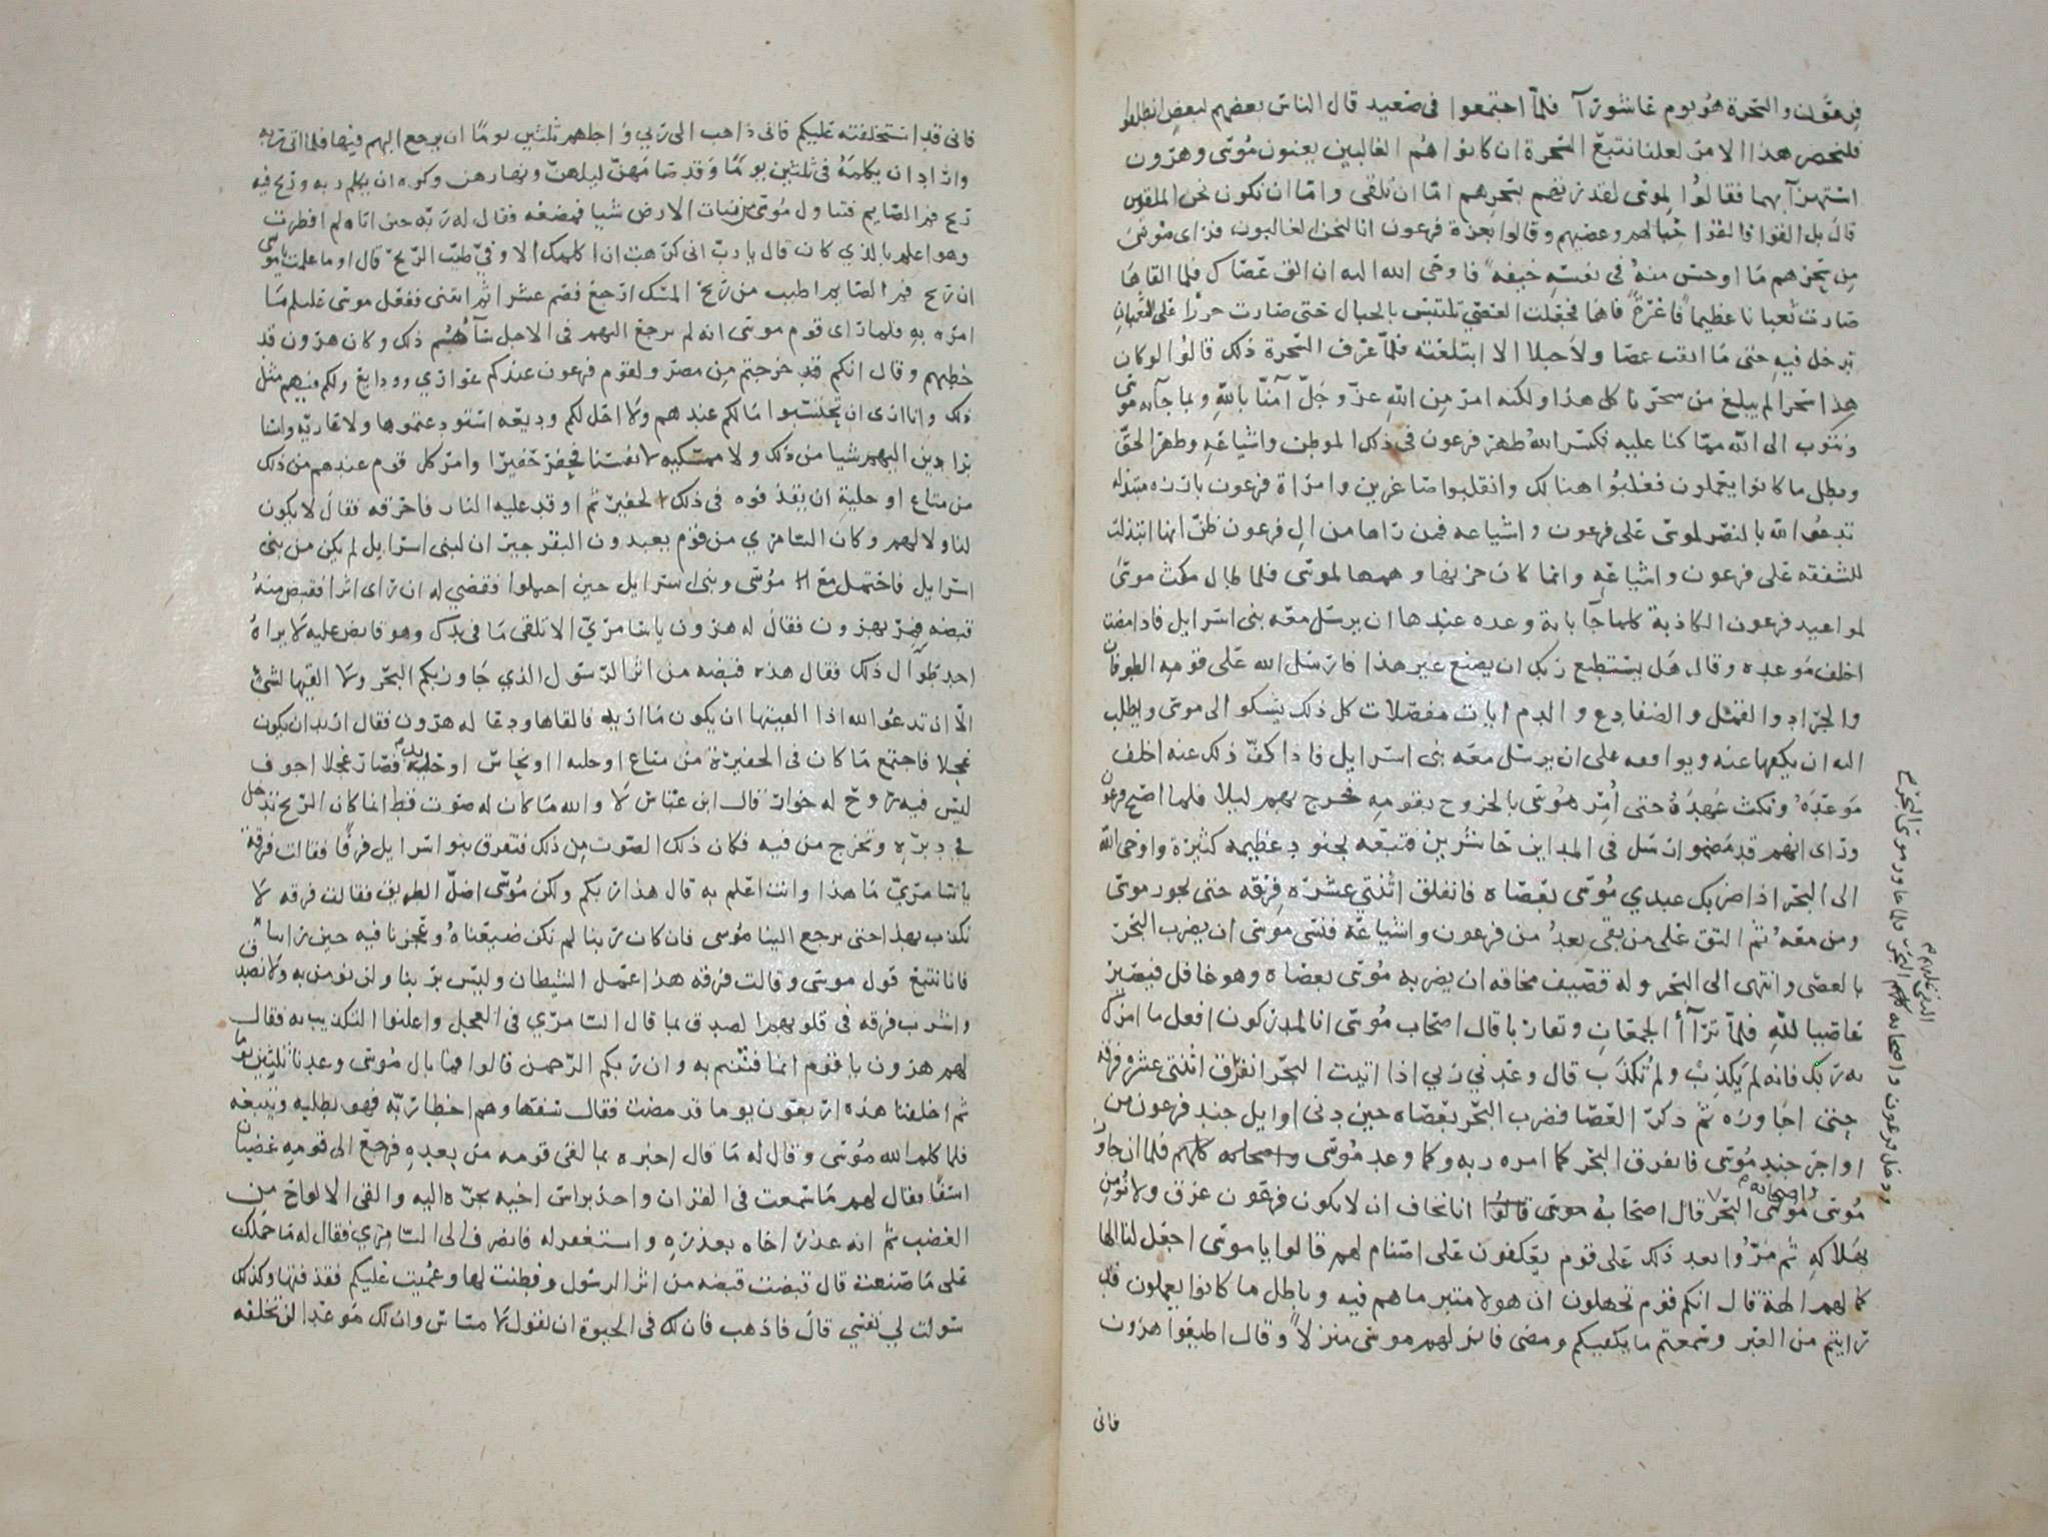 فرعون والسحرة هو يوم عاشورآ فلمّا اجتمعوا فى صعيد قال الناس بعضهم لبعض انطلقوا
فلنحضر هذا الامر لعلنا نتبع السحرة ان كانوا هم الغالبين يعنون موسى وهرون
استهزآ بهما فقالوا لموسى لقدرتهم بسحرهم امّا ان تلقى وامّا ان نكون نحن الملقين
قال بل القوا فالقوا حبالهم وعصيهم وقالوا بعزة فرعون انا لنحن الغالبون فراى موسى
من سحرهم ما اوحس منه فى نفسه خيفة فاوحى الله اليه ان الق عصاك فلما القاها
صارت ثعبانا عظيما فاغرة فاها فجعلت العصى تلتبس بالحبال حتى صارت حررا على الثعبان
تدخل فيه حتى ما ابقت عصا ولا حبلا الا ابتلعته فلمّا عرف السحرة ذلك قالوا لو كان
هذا سحرا لم يبلغ من سحرنا كل هذا ولكنه امر من الله عزّ وجلّ آمنّا بالله وبما جآ به موسى
ونتوب الى الله ممّا كنا عليه فكسر الله ظهر فرعون فى ذلك الموطن واشياعه وظهر الحقّ
وبطل ما كانوا يعملون فغلبوا هنالك وانقلبوا صاغرين وامراة فرعون بارزه متبذله
تدعوا الله بالنصر لموسى على فرعون واشياعه فمن راها من ال فرعون ظنّ انها ابتذلت
للشفقه على فرعون واشياعه وانما كان حزنها وهمها لموسى فلما طال مكث موسى
لمواعيد فرعون الكاذبة كلما جآ باية وعده عندها ان يرسل معه بنى اسرايل فاذا مضت
اخلف موعده وقال هل يستطيع ربك ان يصنع غير هذا فارسل الله على قومه الطوفان
والجراد والقمّل والضفادع والدم ايات مفصلات كل ذلك يشكو الى موسى ويطلب
اليه ان يكفها عنه ويوافقه على ان يرسل معه بنى اسرايل فاذا كفّ ذلك عنه اخلف
موعده ونكث عهده حتى امر موسى بالخروج بقومه فخرج بهم ليلا فلما اصبح فرعون
وراى انهم قد مضوا ارسل فى المداين حاشرين فتبعه بجنود عظيمه كثيرة واوحى الله
الى البحر اذا ضربك عبدي موسى بعصاه فانفلق اثنتى عشره فرقه حتى يجوز موسى
ومن معه ثم التق على من بقى بعد من فرعون واشياعه فنسى موسى ان يضرب البحر
بالعصى وانتهى الى البحر وله قصيف مخافة ان يضربه موسى بعصاه وهو غافل فيصير
عاصيا لله فلمّا تراآ الجمعان وتقاربا قال اصحاب موسى انا لمدركون افعل ما امرك
به ربك فانه لم يكذب ولم تكذب قال وعدني ربي اذا اتيت البحر انفرق اثنتى عشرة فرقة
حتى اجاوزه ثم ذكر العصا فضرب البحر بعصاه حين دنى اوايل جند فرعون من
اواخر جند موسى فانفرق البحر كما امره ربه وكما وعد موسى واصحابه كلهم فلما ان جاوز
موسى واصحابه البحر قال اصحابه انا نخاف ان لا يكون فرعون غرق ولا نؤمن
بهلاكه ثم مرّوا بعد ذلك على قوم يعكفون على اصنام لهم قالوا يا موسى اجعل لنا الها
كما لهم الهة قال انكم قوم تجهلون ان هولا متبر ما هم فيه وباطل ما كانوا يعملون قد
رايتم من العبر وسمعتم ما يكفيكم ومضى فانزلهم موسى منزلاً وقال اطيعوا هرون
فانى
ودخل فرعون واصحابه كلهم البحر فلما جاوز موسى البحر
فانى قد استخلفته عليكم فانى ذاهب الى ربي واجلهم ثلثين يومًا ان يرجع اليهم فيها فلما اتى ربه
واراد ان يكلمه فى ثلثين يوما وقد صامهنّ ليلهنّ ونهارهن وكره ان يكلم ربه وريح فيه
ريح فم الصايم فتناول موسى من نبات الارض شيا فمضغه فقال له ربّه حين اتاه لم افطرت
وهو اعلم بالذي كان قال يا ربّ انى كرهت ان اكلمك الا وفيّ طيب الريح قال او ما علمت يا موسى
ان ريح فم الصايم اطيب من ريح المسك ارجع فصم عشرا ثم ايتنى ففعل موسى عليلم ما
امره به فلما راى قوم موسى انه لم يرجع اليهم فى الاجل سآهم ذلك وكان هرون قد
خطبهم وقال انكم قد خرجتم من مصر ولقوم فرعون عندكم عواري وودايع ولكم فيهم مثل
ذلك وانا ارى ان تحتسبوا ما لكم عندهم ولا احل لكم وديعه استودعتموها ولا عاريّه ولسنا
برادين اليهم شيا من ذلك ولا ممسكيه لانفسنا فحفر حفيرا وامر كل قوم عندهم من ذلك
من متاع او حلية ان يقذفوه فى ذلك الحفير ثم اوقد عليه النار فاحرقه فقال لا يكون
لنا ولا لهم وكان السامري من قوم يعبدون البقر جيران لبنى اسرايل لم يكن من بنى
اسرايل فاحتمل مع موسى وبنى اسرايل حين احتملوا فقضي له ان راى اثرا فقبض منه
قبضه فمرّ بهرون فقال له هرون يا سامريّ الا تلقى ما فى يدك وهو قابض عليه لا يراه
احد طوال ذلك فقال هذه قبضه من اثر الرسول الذي جاوز بكم البحر ولا القيها لشىْ
الّا ان تدعوا الله اذا القيتها ان يكون ما اريد فالقاها ودعا له هرون فقال اريد ان يكون
عجلا فاجتمع ما كان فى الحفيرة من متاع او حليه او نحاس او حديد فصار عجلا اجوف
ليس فيه روح له خوار قال ابن عباس لا والله ما كان له صوت قط انما كان الريح تدخل
في دبره وتخرج من فيه فكان ذلك الصوت من ذلك فتفرق بنو اسرايل فرقًا فقالت فرقة
يا سامريّ ما هذا وانت اعلم به قال هذا ربكم ولكن موسى اضلّ الطريق فقالت فرقه لا
نكذب بهذا حتى يرجع الينا موسى فان كان ربنا لم نكن ضيعناه وعجزنا فيه حين راينا
فانا نتبع قول موسى وقالت فرقه هذا عمل الشيطان وليس بربنا ولن نومن به ولا نصدق
واشرب فرقه فى قلوبهم الصدق بما قال السامري فى العجل واعلنوا التكذيب به فقال
لهم هرون يا قوم انما فتنتم به وان ربكم الرّحمن قالوا فما بال موسى وعدنا ثلثين يوما
ثم اخلفنا هذه اربعون يوما قد مضت فقال سفهاوهم اخطا ربّه فهو يطلبه ويتبعه
فلما كلم الله موسى وقال له ما قال اخبره بما لقى قومه من بعده فرجع الى قومه غضبان
اسفًا فقال لهم ما سمعت فى القران واخذ براس اخيه يجرّه اليه والقى الالواح من
الغضب ثم انه عذر اخاه بعذره واستغفر له فانصرف الى السامري فقال له ما حملك
على ما صنعت قال قبضت قبضه من اثر الرسول وفطنت لها وعميت عليكم فقذفتها وكذلك
سولت لي نفسي قال فاذهب فان لك فى الحيوة ان تقول لا مساس وان لك موعدا لن تخلفه